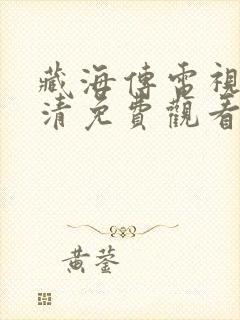 藏海傳電視
清免費觀看
黃蓥